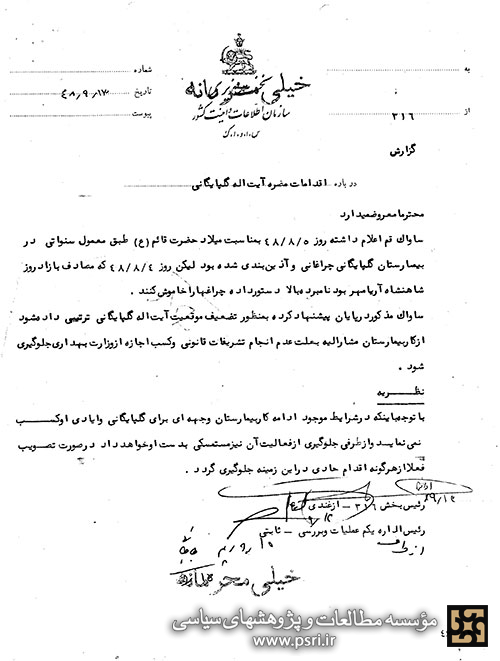 خیلی محرمانه
به
شماره
تاریخ ۴۸٫۹٫۱۳
پیوست
از ۳۱۶
سازمان اطلاعات و امنیت کشور
س.ا.و.ا.ک
گزارش
درباره اقدامات مضره آیت اله گلپایگانی
محترما معروضمیدارد
ساواک قم اعلام داشته روز ۴۸/۸/۵ بمناسبت میلاد حضرت قائم (ع) طبق معمول سنواتی در
بیمارستان گلپایگانی چراغانی و آذین بندی شده بود لیکن روز ۴۸/۸/۴ که مصادف بازادروز
شاهنشاه آریامهر بود نامبرده بالا دستورداده چراغها را خاموش کنند .
ساواک مذکور درپایان پیشنهاد کرده بمنظور تضعیف موقعیت آیت اله گلپایگانی ترتیبی داده شود
از کار بیمارستان مشارالیه بعلت عدم انجام تشریفات قانونی و کسب اجازه از وزارت بهداری جلوگیری
شود .
نظریه
با توجه باینکه درشرایط موجود ادامه کار بیمارستان وجهه ای برای گلپایگانی وایادی او کسب
نمی نماید و از طرفی جلوگیری از فعالیت آن نیز مستمسکی بدست او خواهد داد درصورت تصویب
فعلا از هرگونه اقدام حادی در این زمینه جلوگیری گردد .
رئیس بخش ۳۱۶ - ازغندی
رئیس اداره یکم عملیات و بررسی - ثابتی
خیلی محرمانه
مؤسسه مطالعات و پژوهشهای سیاسی
www.psri.ir